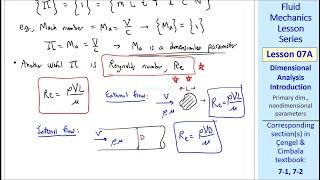 { } = { m L t T I C N }
e.g., Mach number = Ma = V/C → {Ma} = {1}
Π = Ma = V/C → Ma is a dimensionless parameter
• Another useful Π is Reynolds number, Re
Re = ρVL/μ
External flow:
V
ρ μ
L
Re = ρVL/μ
Internal flow:
V
ρ μ
D
Re = ρVD/μ
Fluid
Mechanics
Lesson
Series
Lesson 07A
Dimensional
Analysis
Introduction
Primary dim.,
nondimensional
parameters
Corresponding
section(s) in
Çengel &
Cimbala
textbook:
7-1, 7-2